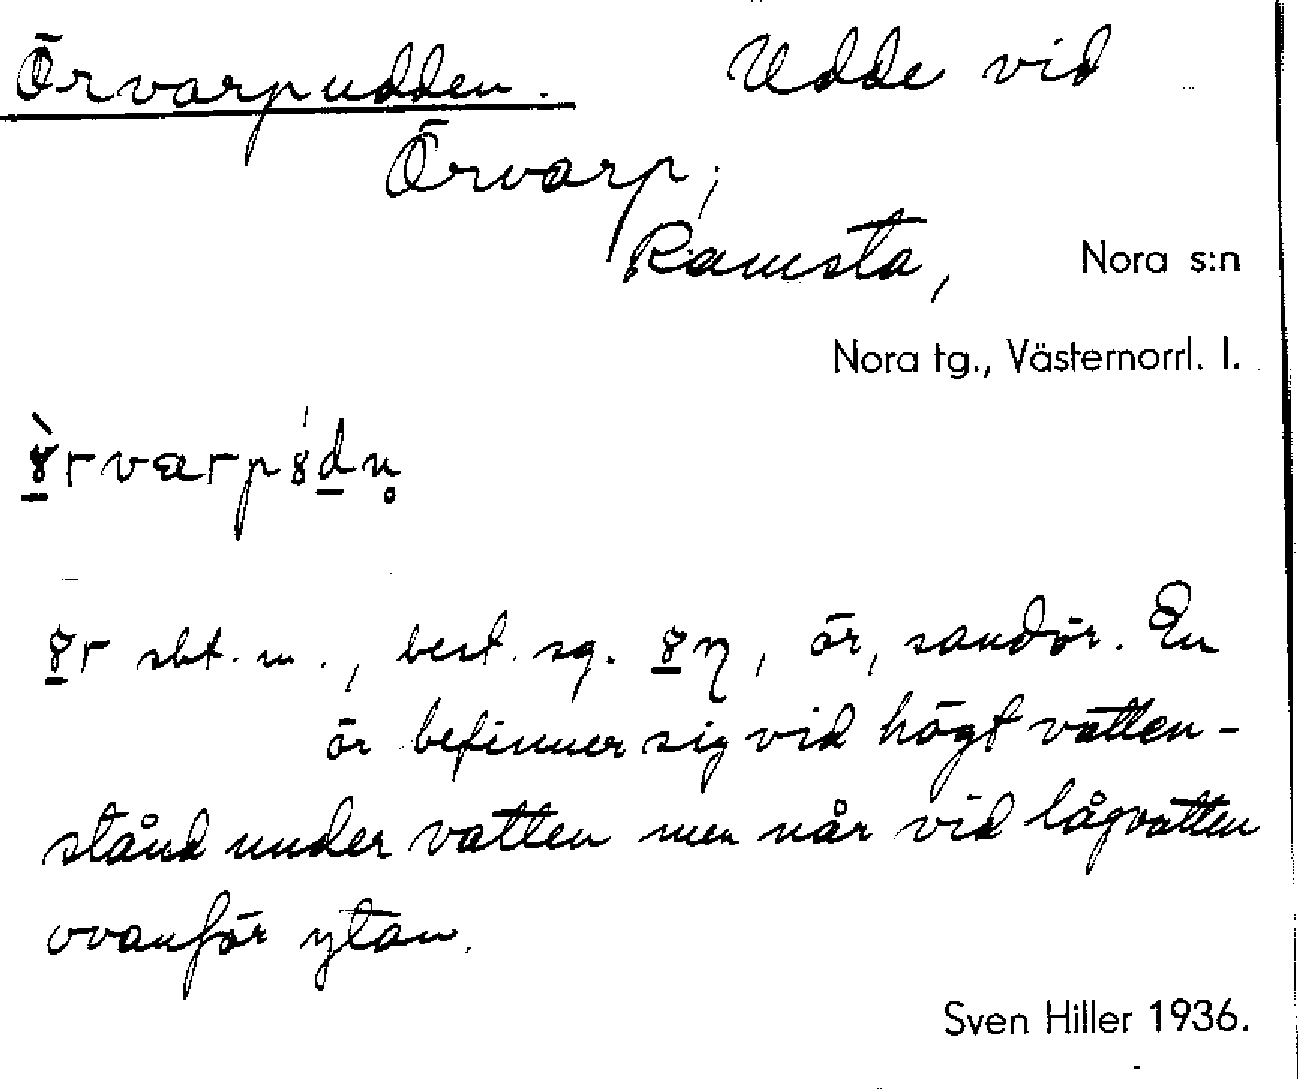 Örvarpudden. Udde vid
Örvarp,
Ramsta, Nora s:n
Nora tg., Västernorrl. l.
sbt. m., best. sg. , ör, sandör. En
ör befinner sig vid högt vatten-
stånd under vatten men når vid lågvatten
ovanför ytan.
Sven Hiller 1936.